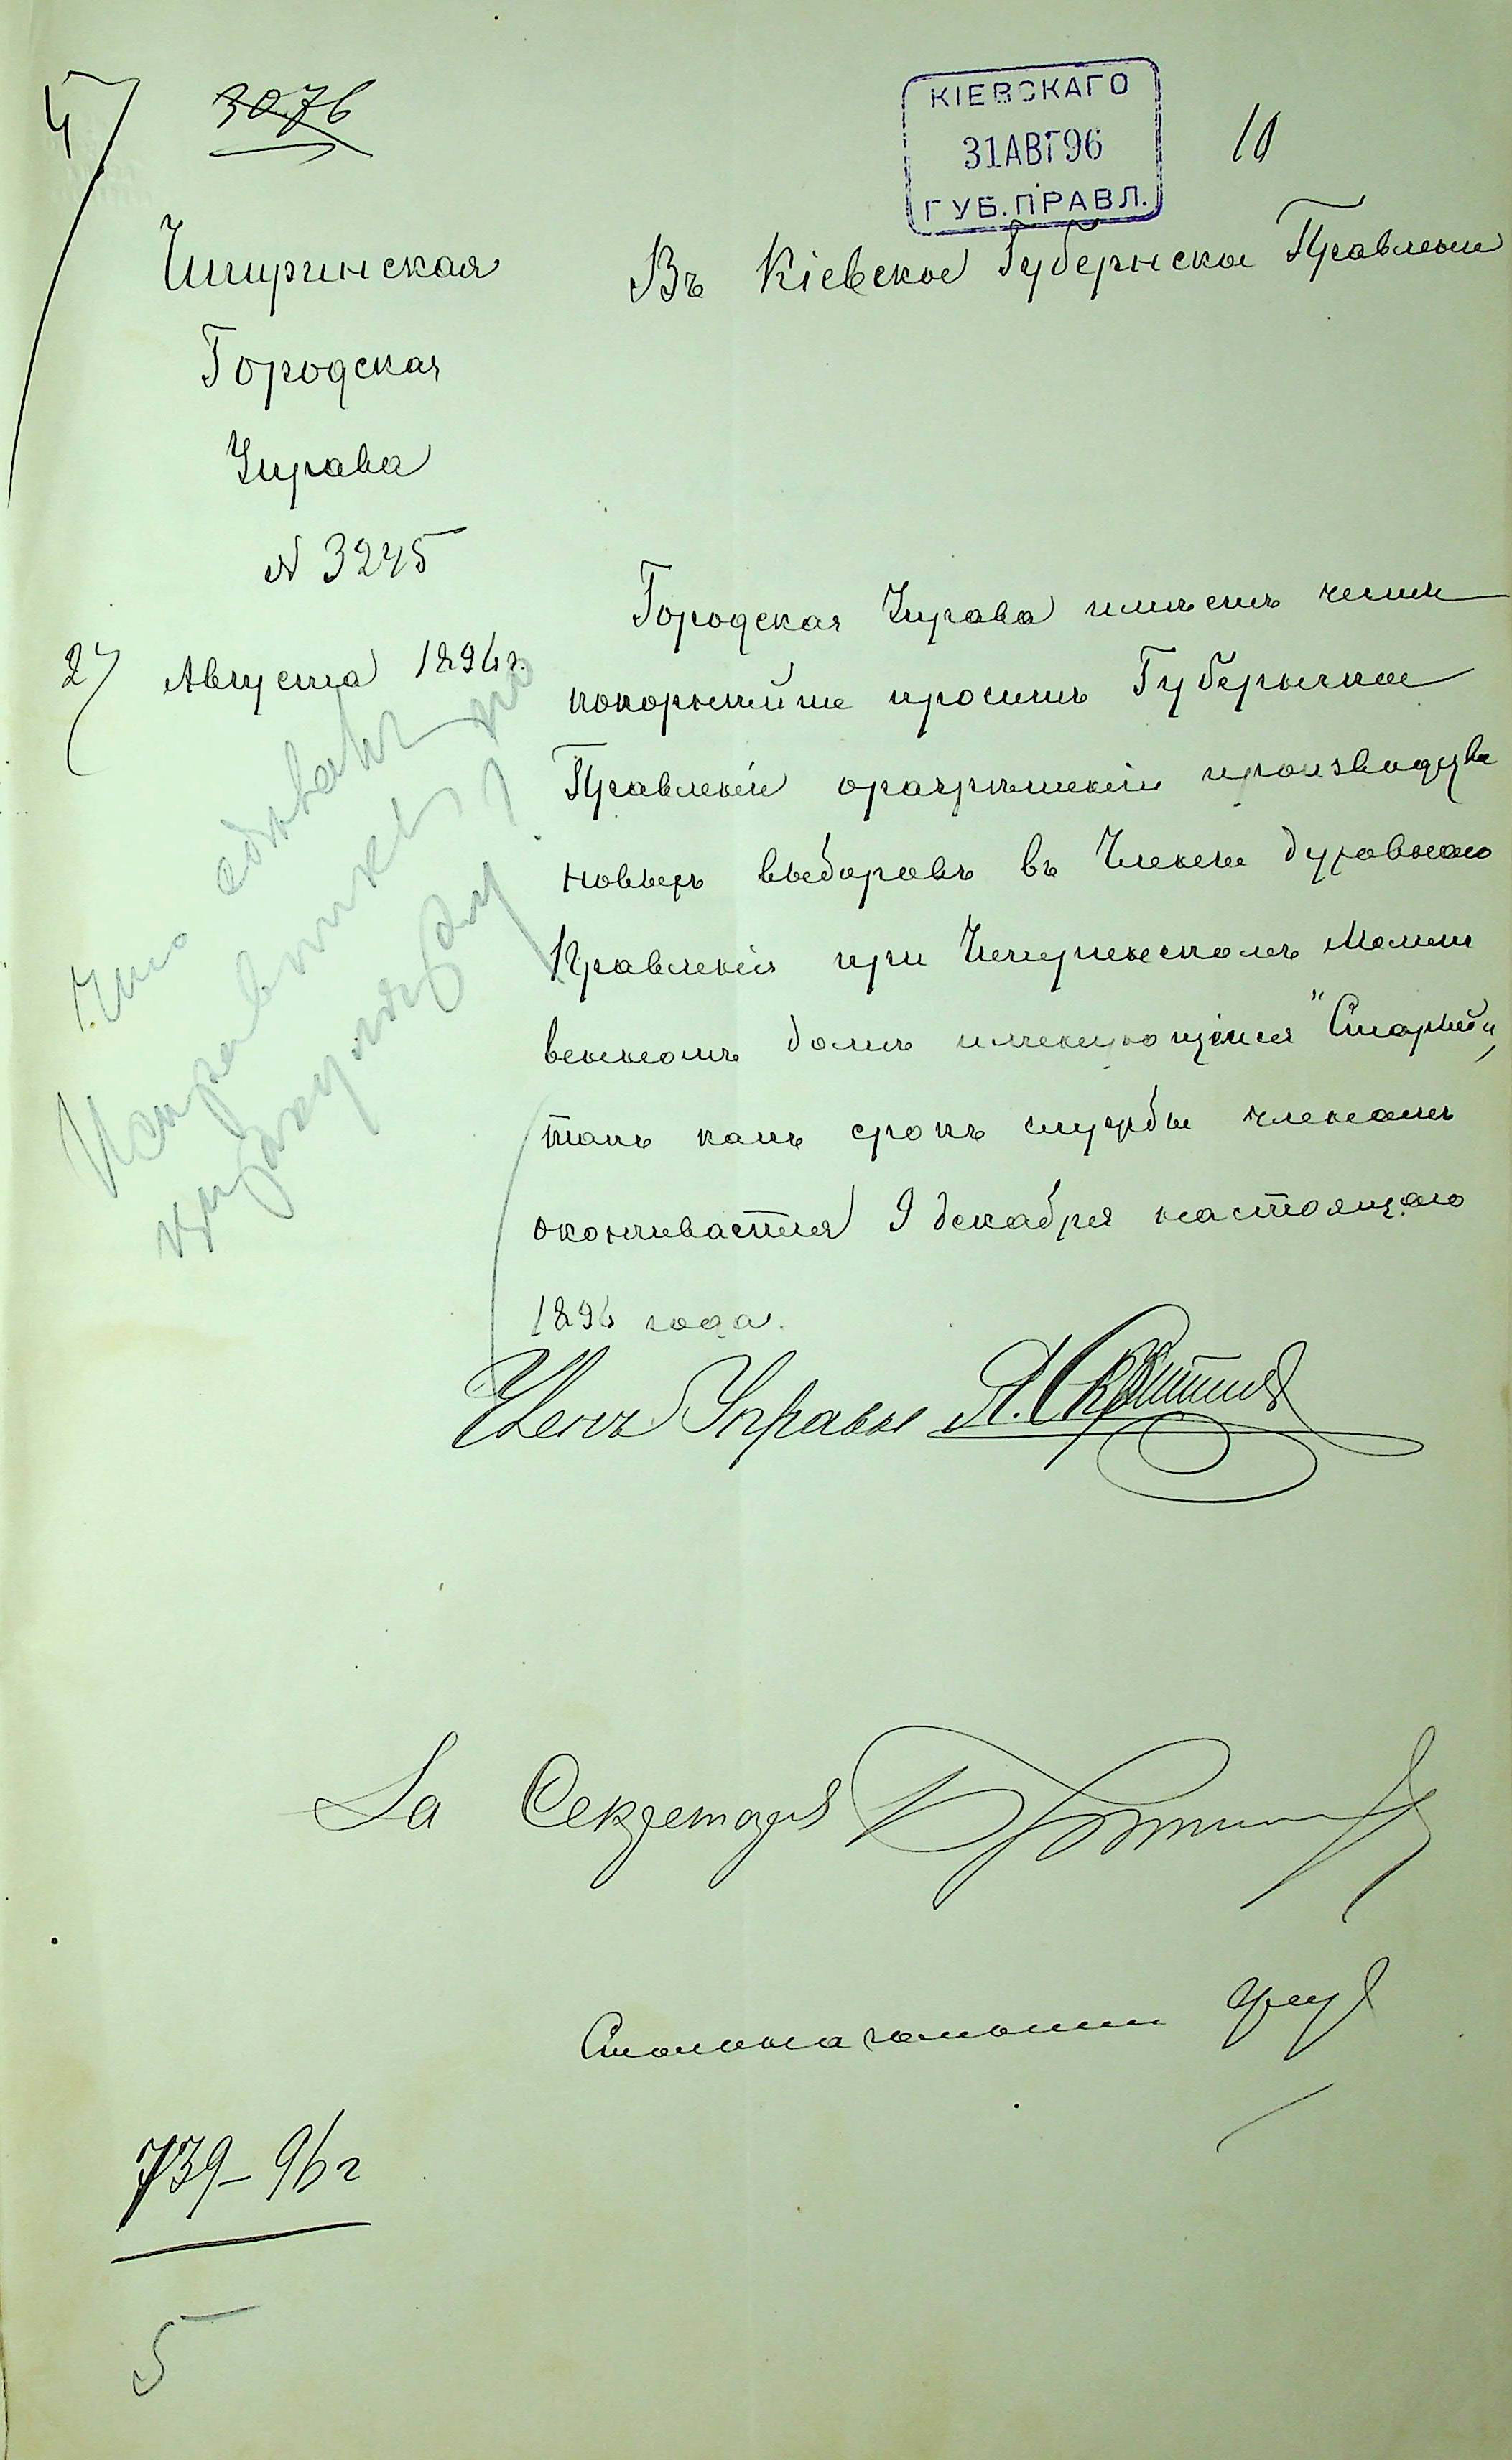 3076
КІЕВСКАГО
31 АВГ 96
ГУБ. ПРАВЛ.
10
Чигиринская
Городская
Управа
N 3245
27 Августа 1896 г.
Въ Кіевское Губернское Правленіе
Городская Управа имѣетъ честь
покорнѣйше просить Губернское
Правленіе о разрѣшеніи производства
новыхъ выборовъ въ Члены духовнаго
Правленія при Чигиринскомъ Молит
венномъ домѣ именующимся "Старый",
такъ какъ срокъ службы членамъ
оканчивается 9 декабря настоящаго
1896 года.
Членъ Управы
За Секретаря
Столоначальникъ
739-96 г
5